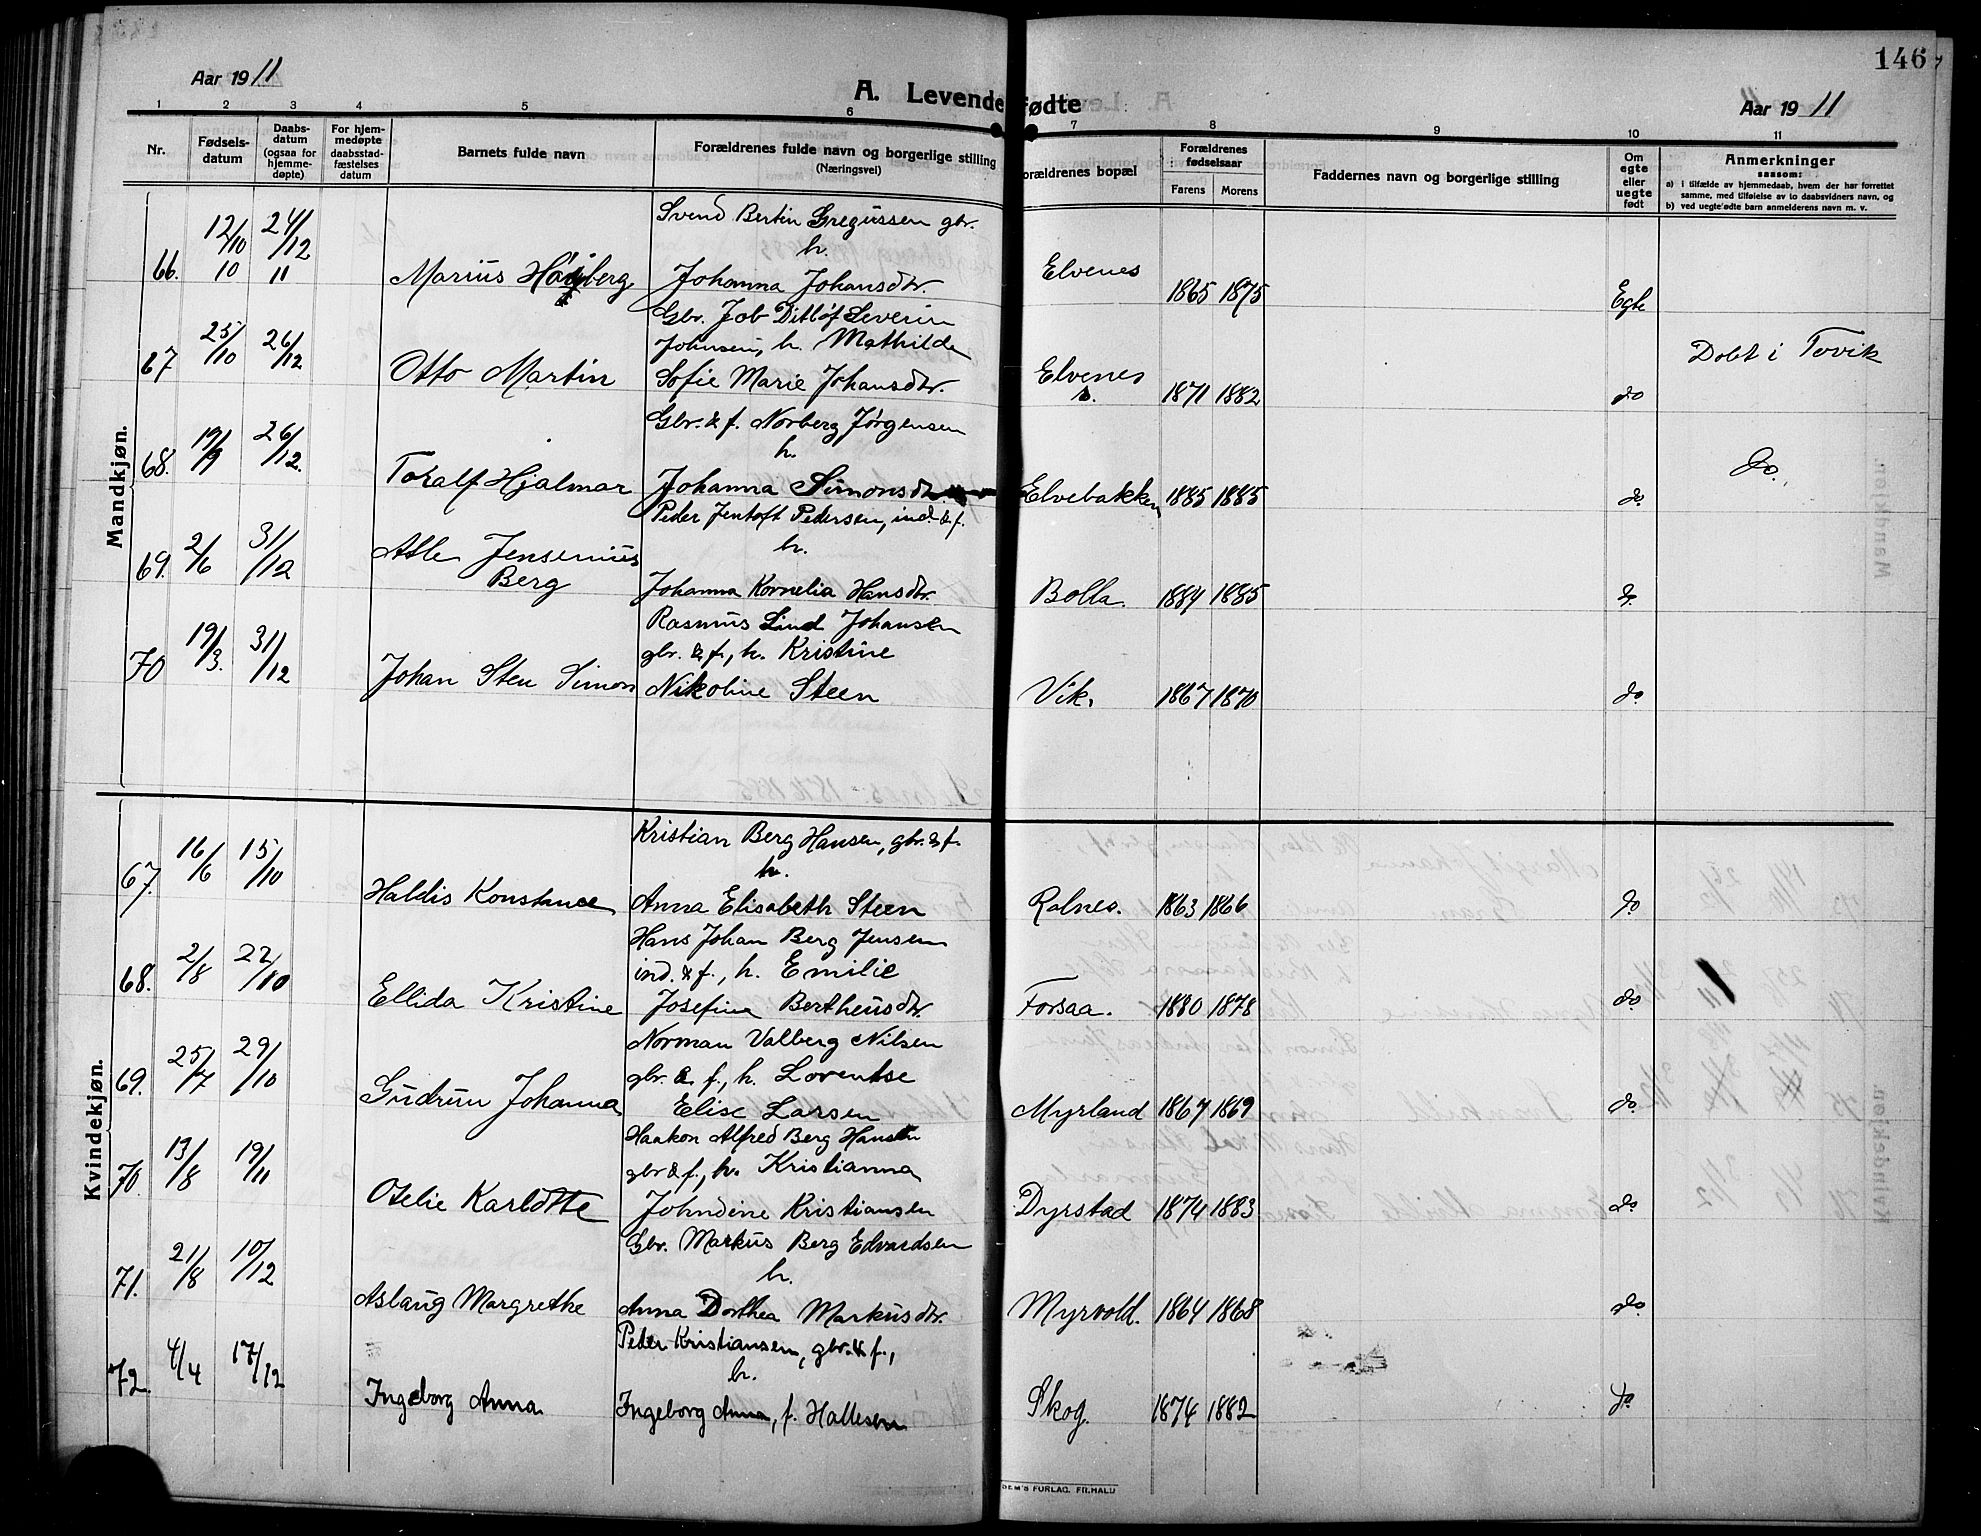 146
Aar 1911
A. Levendefødte
Aar 1911
1 2 3 4 5 6 7 8 9 10 11
Nr.
Fødsels-
datum
Daabs-
datum
(ogsaa for
hjemme-
døpte)
For hjem-
medøpte
daabsstad-
fæstelses
datum
Barnets fulde navn
Forældrenes fulde navn og borgerlige stilling
(Næringsvei)
orældrenes bopæl
Forældrenes
fødselsaar
Farens Morens
Faddernes navn og borgerlige stilling
Om
egte
eller
uegte
født
Anmerkninger
saasom:
a) i tilfælde av hjemmedaab, hvem der har forrettet
samme, med tilføielse av to daabsvidners navn, og
b) ved uegte fødte barn anmelderens navn m. v.
Mandkjøn.
Svend Bertin Gregussen gbr.
h.
66. 12/10 10 24/12 11 Marius Høiberg Johanna Johansdtr. Elvenes 1865 1875 Egte
Gbr. Job Ditløf Severin
Johnsen, h. Mathilde
67 25/10 26/12 Otto Martin Sofie Marie Johansdtr. Elvenes 1871 1882 do Døbt i Tovik
Gbr. & f. Norberg Jørgensen
h.
68. 19/9 26/12 Toralf Hjalmar Johanna Simonsdtr Elvebakken 1885 1885 do Do.
Peder Jentoft Pedersen, ind. & f.
h.
69. 2/6 31/12 Atle Jensenius
Berg Johanna Kornelia Hansdtr. Bolla. 1884 1885 do.
Rasmus Lind Johansen
gbr. & f., h. Kristine
70 19/3. 31/12 Johan Sten Simon Nikoline Steen Vik. 1867 1870 do.
Kvindekjøn.
Kristian Berg Hansen, gbr. & f.
h.
67. 16/6 15/10 Haldis Konstance Anna Elisabeth Steen Rolnes. 1863 1866 do
Hans Johan Berg Jensen
ind. & f., h. Emilie
68. 2/8 22/10 Ellida Kristine Josefine Bertheusdtr. Forsaa. 1880 1878 do.
Norman Valberg Nilsen
gbr. & f., h. Lorentse
69. 25/7 29/10 Gudrun Johanna Elise Larsen Myrland 1867 1869 do.
Haakon Alfred Berg Hansen
gbr & f., h. Kristianna
70. 13/8 19/11 Otelie Karlotte Johndine Kristiansen Dyrstad 1874 1883 do.
Gbr. Markus Berg Edvardsen
h.
71. 21/8 10/12 Aslaug Margrethe Anna Dorthea Markusdtr. Myrvold. 1864 1868 do.
Peder Kristiansen, gbr. & f.,
h.
72. 4/4 17/12 Ingeborg Anna Ingeborg Anna, f. Hallesen Skog. 1874 1882 do.
DEM'S FORLAG. FR.HALD